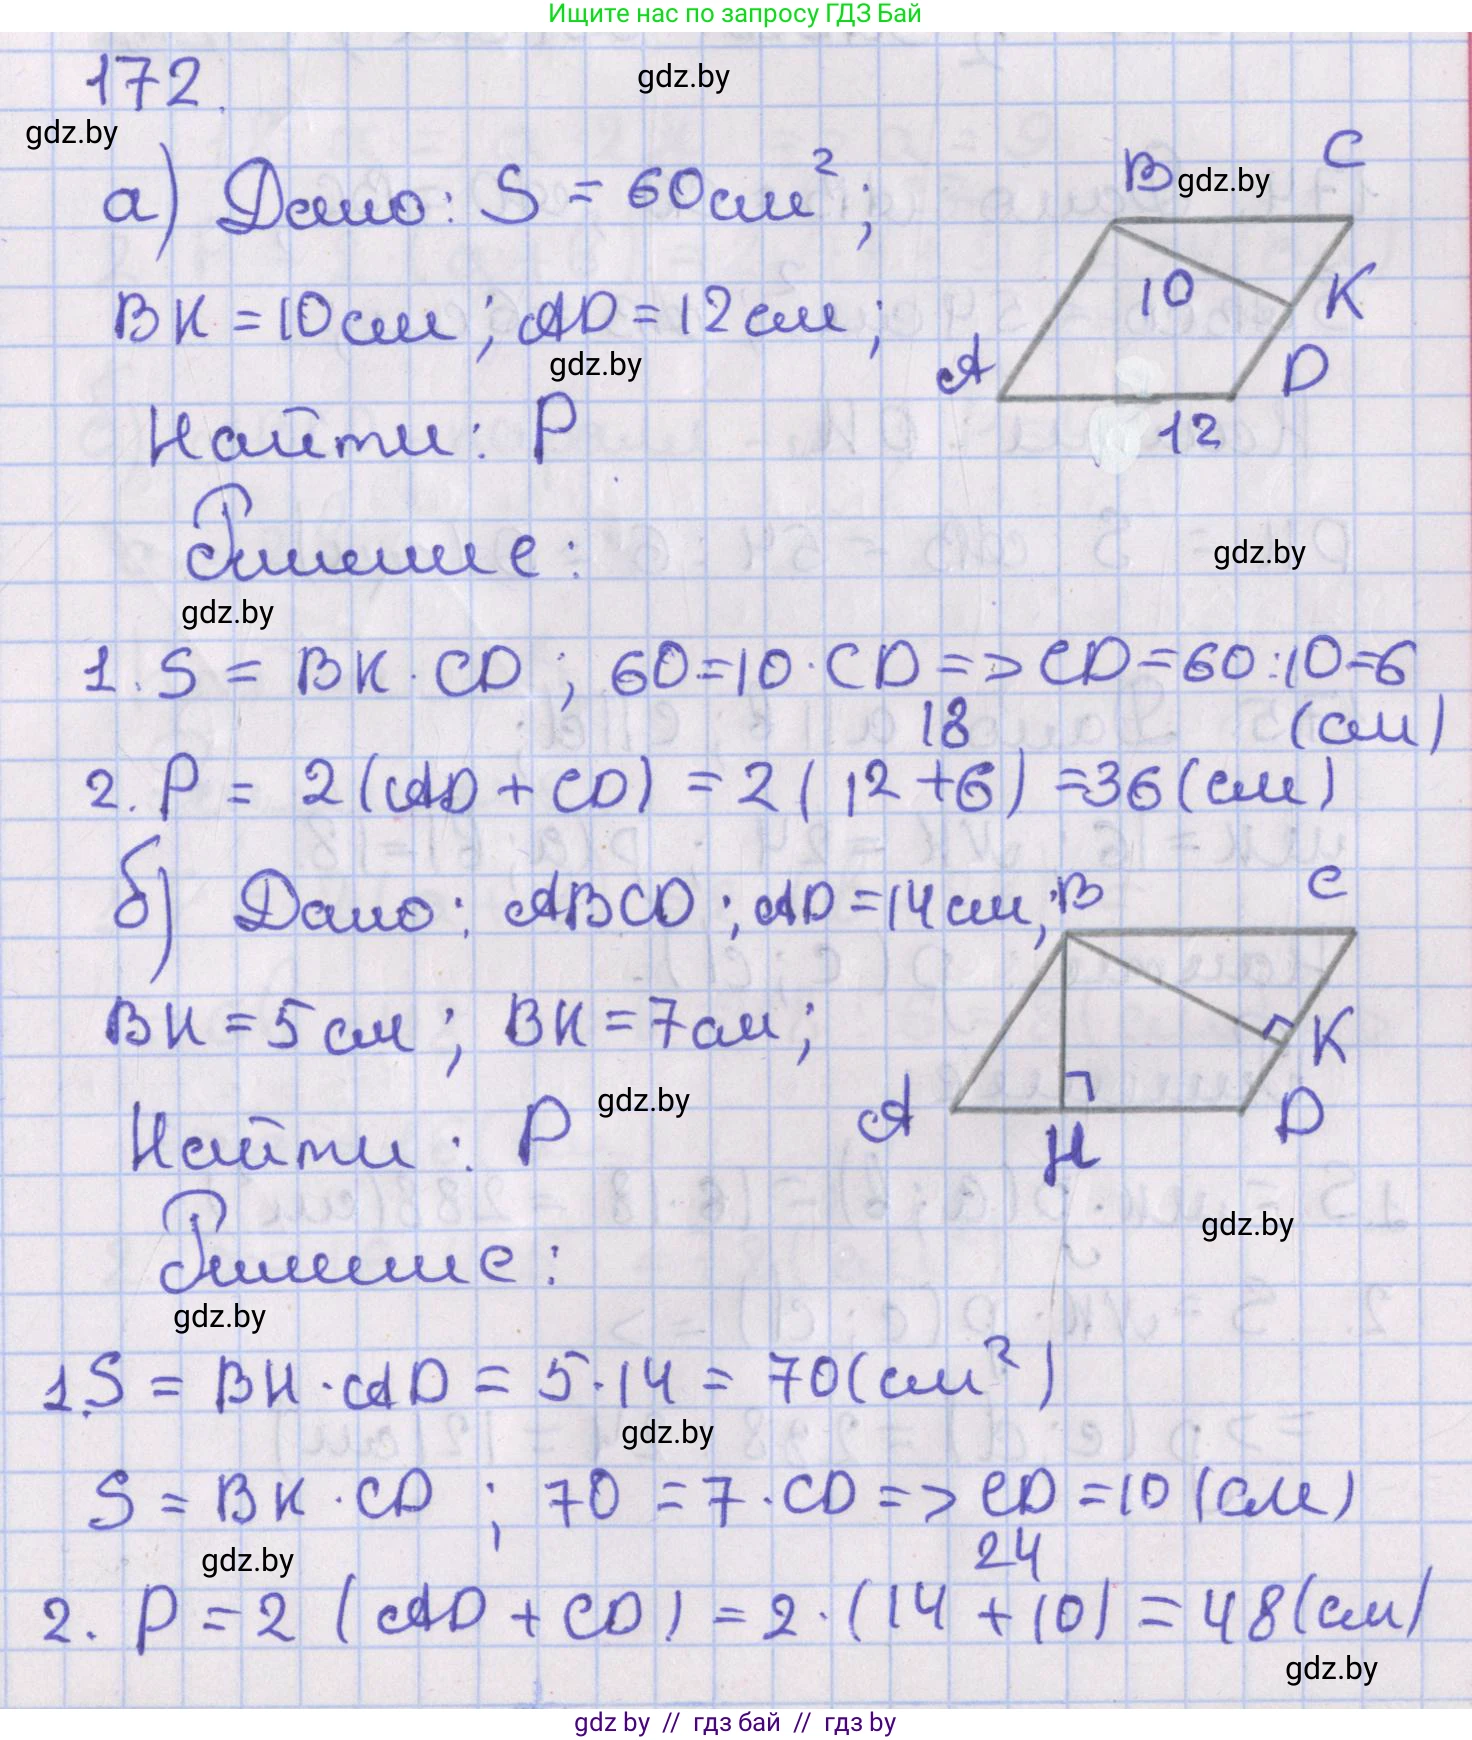 Ищите нас по запросу ГДЗ Бай
172.
gdz.by
gdz.by
а) Дано: S = 60 см²;
B gdz.by C
BK = 10 см; AD = 12 см;
10 K
gdz.by
A D
Найти: P
12
Решение:
gdz.by
gdz.by
1. S = BK · CD; 60 = 10 · CD => CD = 60 : 10 = 6
18 (см)
2. P = 2(AD + CD) = 2(12 + 6) = 36 (см)
б) Дано: ABCD; AD = 14 см;
B C
BH = 5 см; BK = 7 см;
K
gdz.by
A H D
Найти: P
gdz.by
Решение:
gdz.by
1. S = BH · AD = 5 · 14 = 70 (см²)
gdz.by
S = BK · CD; 70 = 7 · CD => CD = 10 (см)
gdz.by
24
2. P = 2 (AD + CD) = 2 · (14 + 10) = 48 (см)
gdz.by
gdz by // гдз бай // гдз by